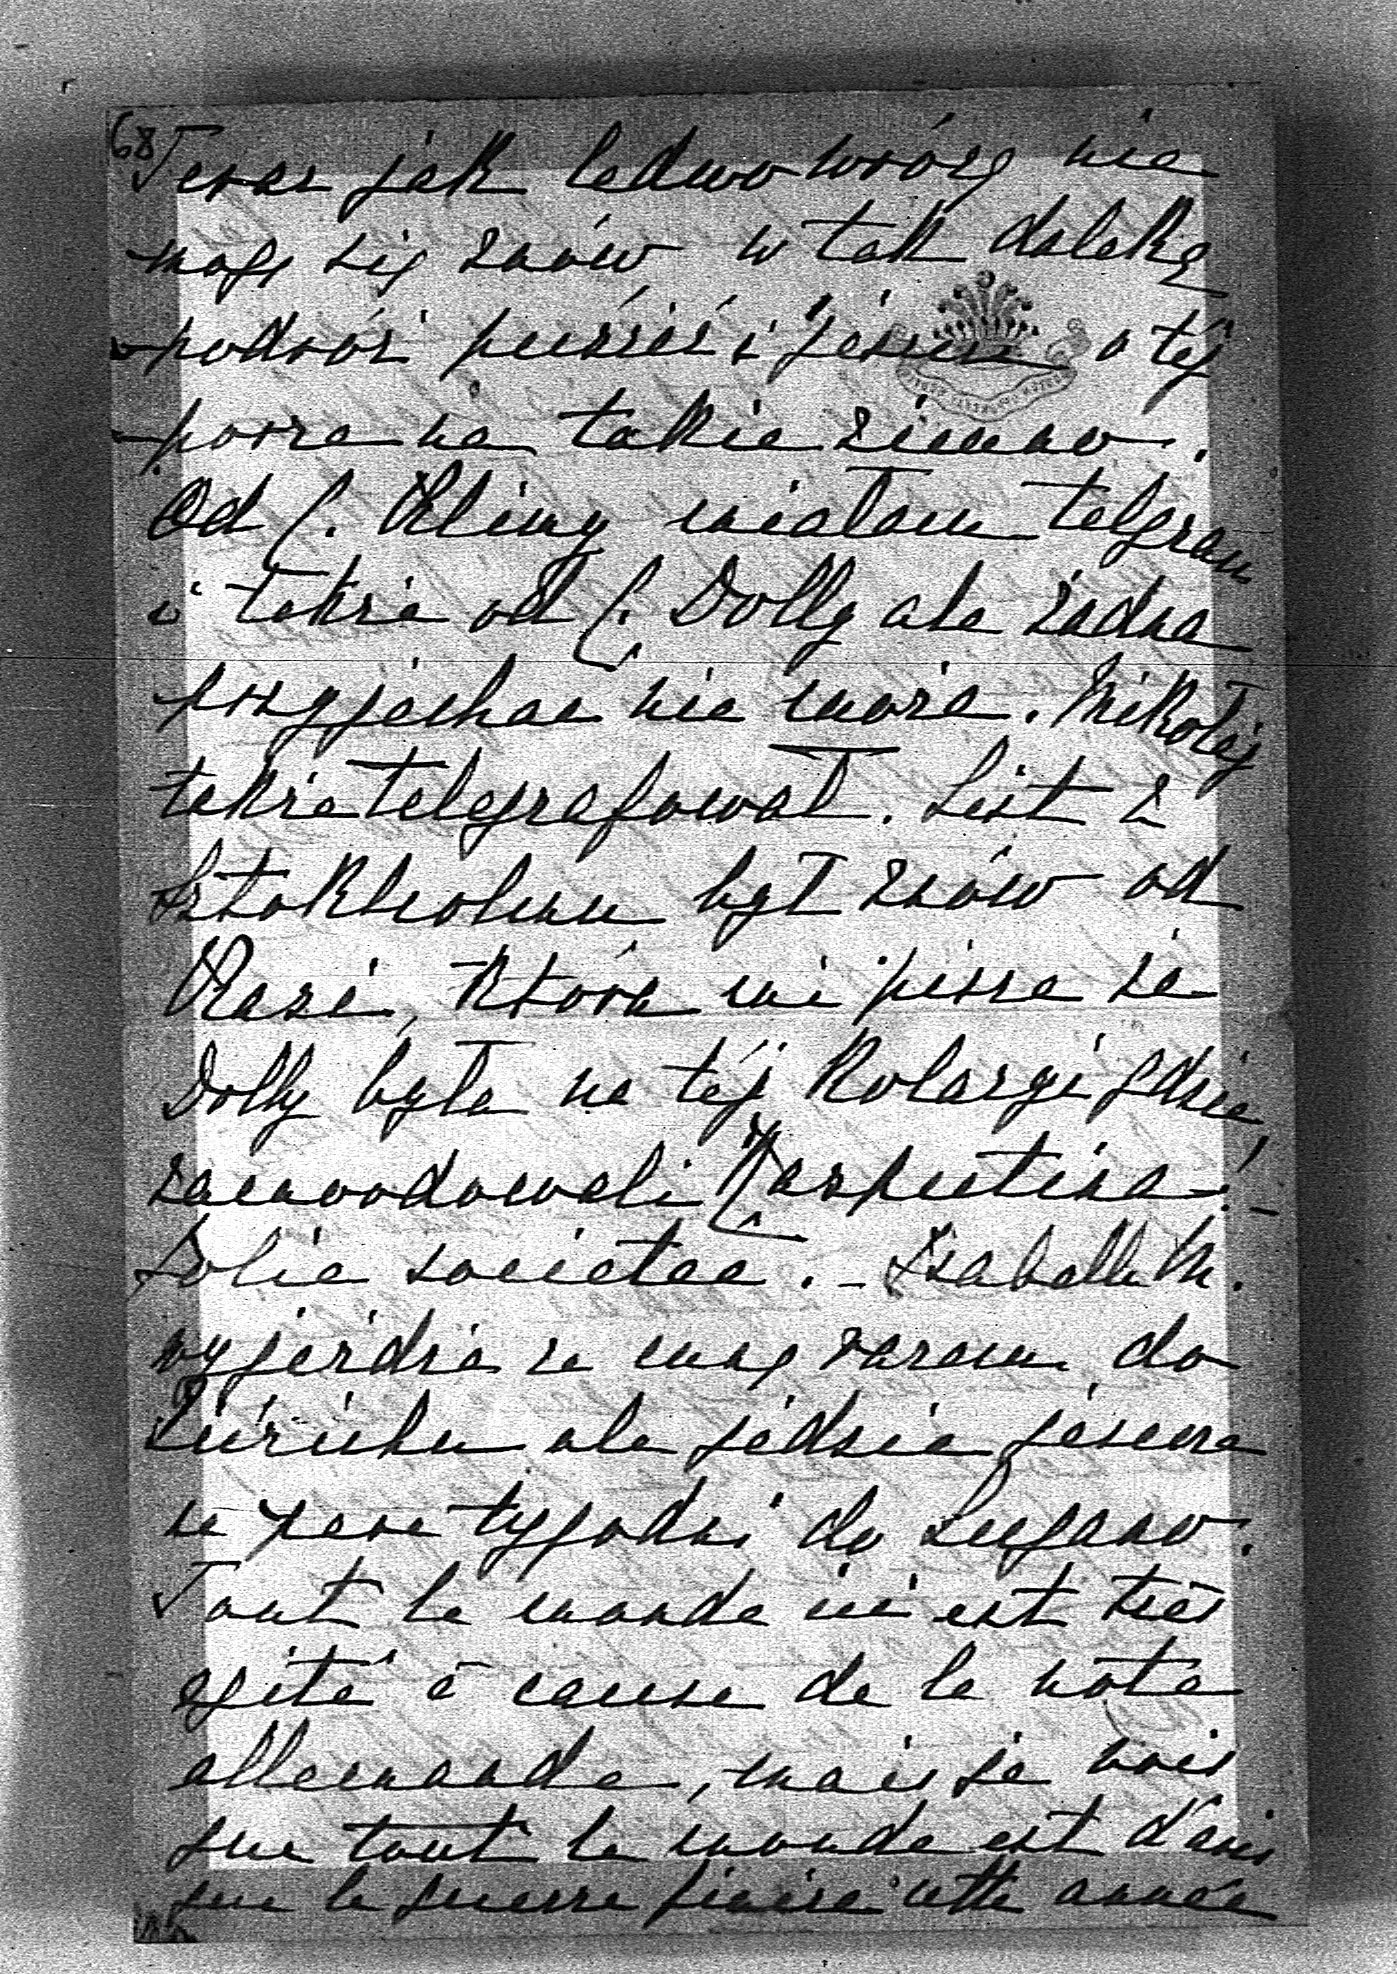 68
Teraz jak ledwo wrócę nie
mogę się znów w tak daleką
podróż puścić i jeszcze o téj
porze na takie zimno.
Od C. Klimy miałam telgram
i także od C. Dolly ale żadna
przyjechac nie może. Mikołaj
także telegrafował. List z
Sztokholmu był znów od
Razi, która mi pisze że
Dolly była na téj kolacyi gdzie
zamordowali Rasputina!
Jolie societee. - Izabella M.
wyjeżdża ze mną razem do
Zürichu ale jedzie jeszcze
na pare tygodni do Lugano.
Tout le monde ici est très
agité à cause de la note
allemande, mais je vois
que tout le monde est d'avis
que la guerre finira cette année